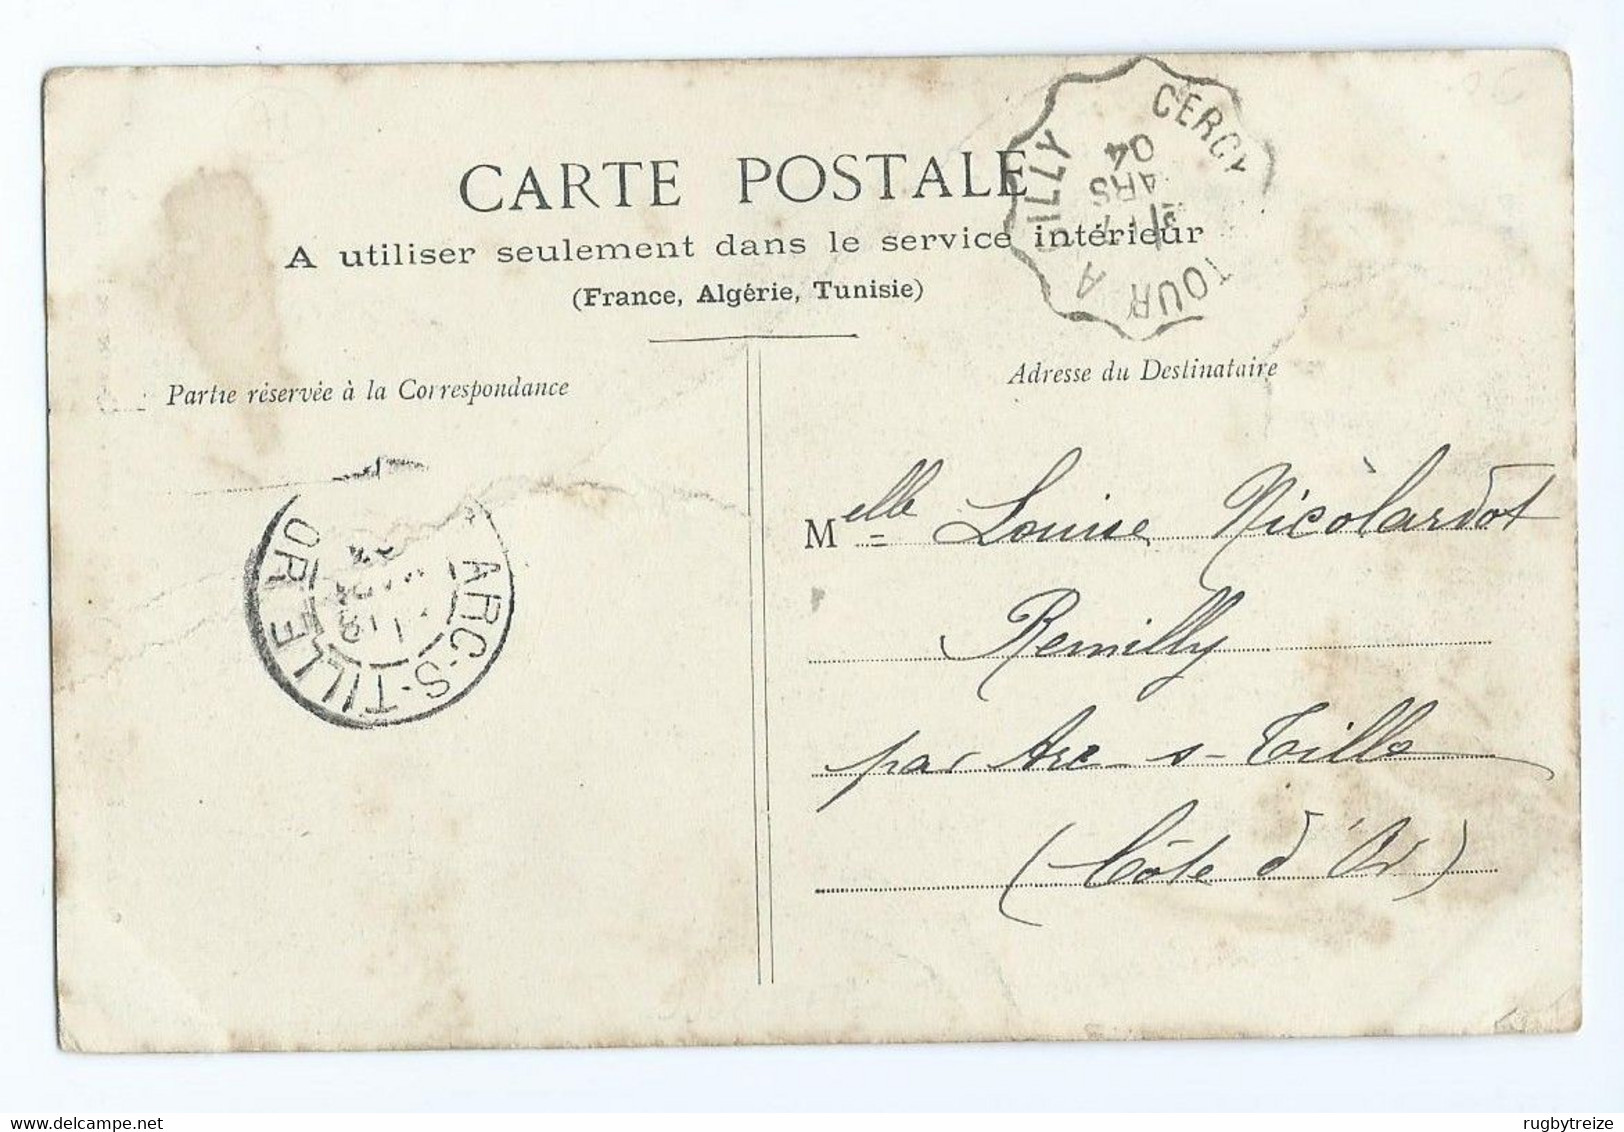 CARTE POSTALE
A utiliser seulement dans le service intérieur
(France, Algérie, Tunisie)
Partie réservée à la Correspondance
Adresse du Destinataire
CERCY TOUR A GILLY
04
ARS
ARC-S-TILLE
Melle Louise Nicolardot
Remilly
par Arc-s-Tille
(Côte d'Or)
delcampe.net
rugbytreize